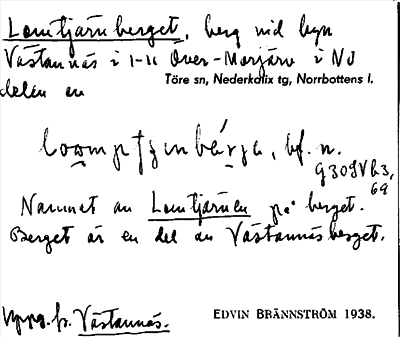 Lomtjärnberget, berg vid byn
Västannäs i 1-11 Över-Morjärv i NO
Töre sn, Nederkalix tg, Norrbottens l.
delen av
bf. n.
G 309 V
69
Namnet av Lomtjärnen på berget.
Berget är en del av Västannäsberget.
Uppg. fr. Västannäs.
EDVIN BRÄNNSTRÖM 1938.